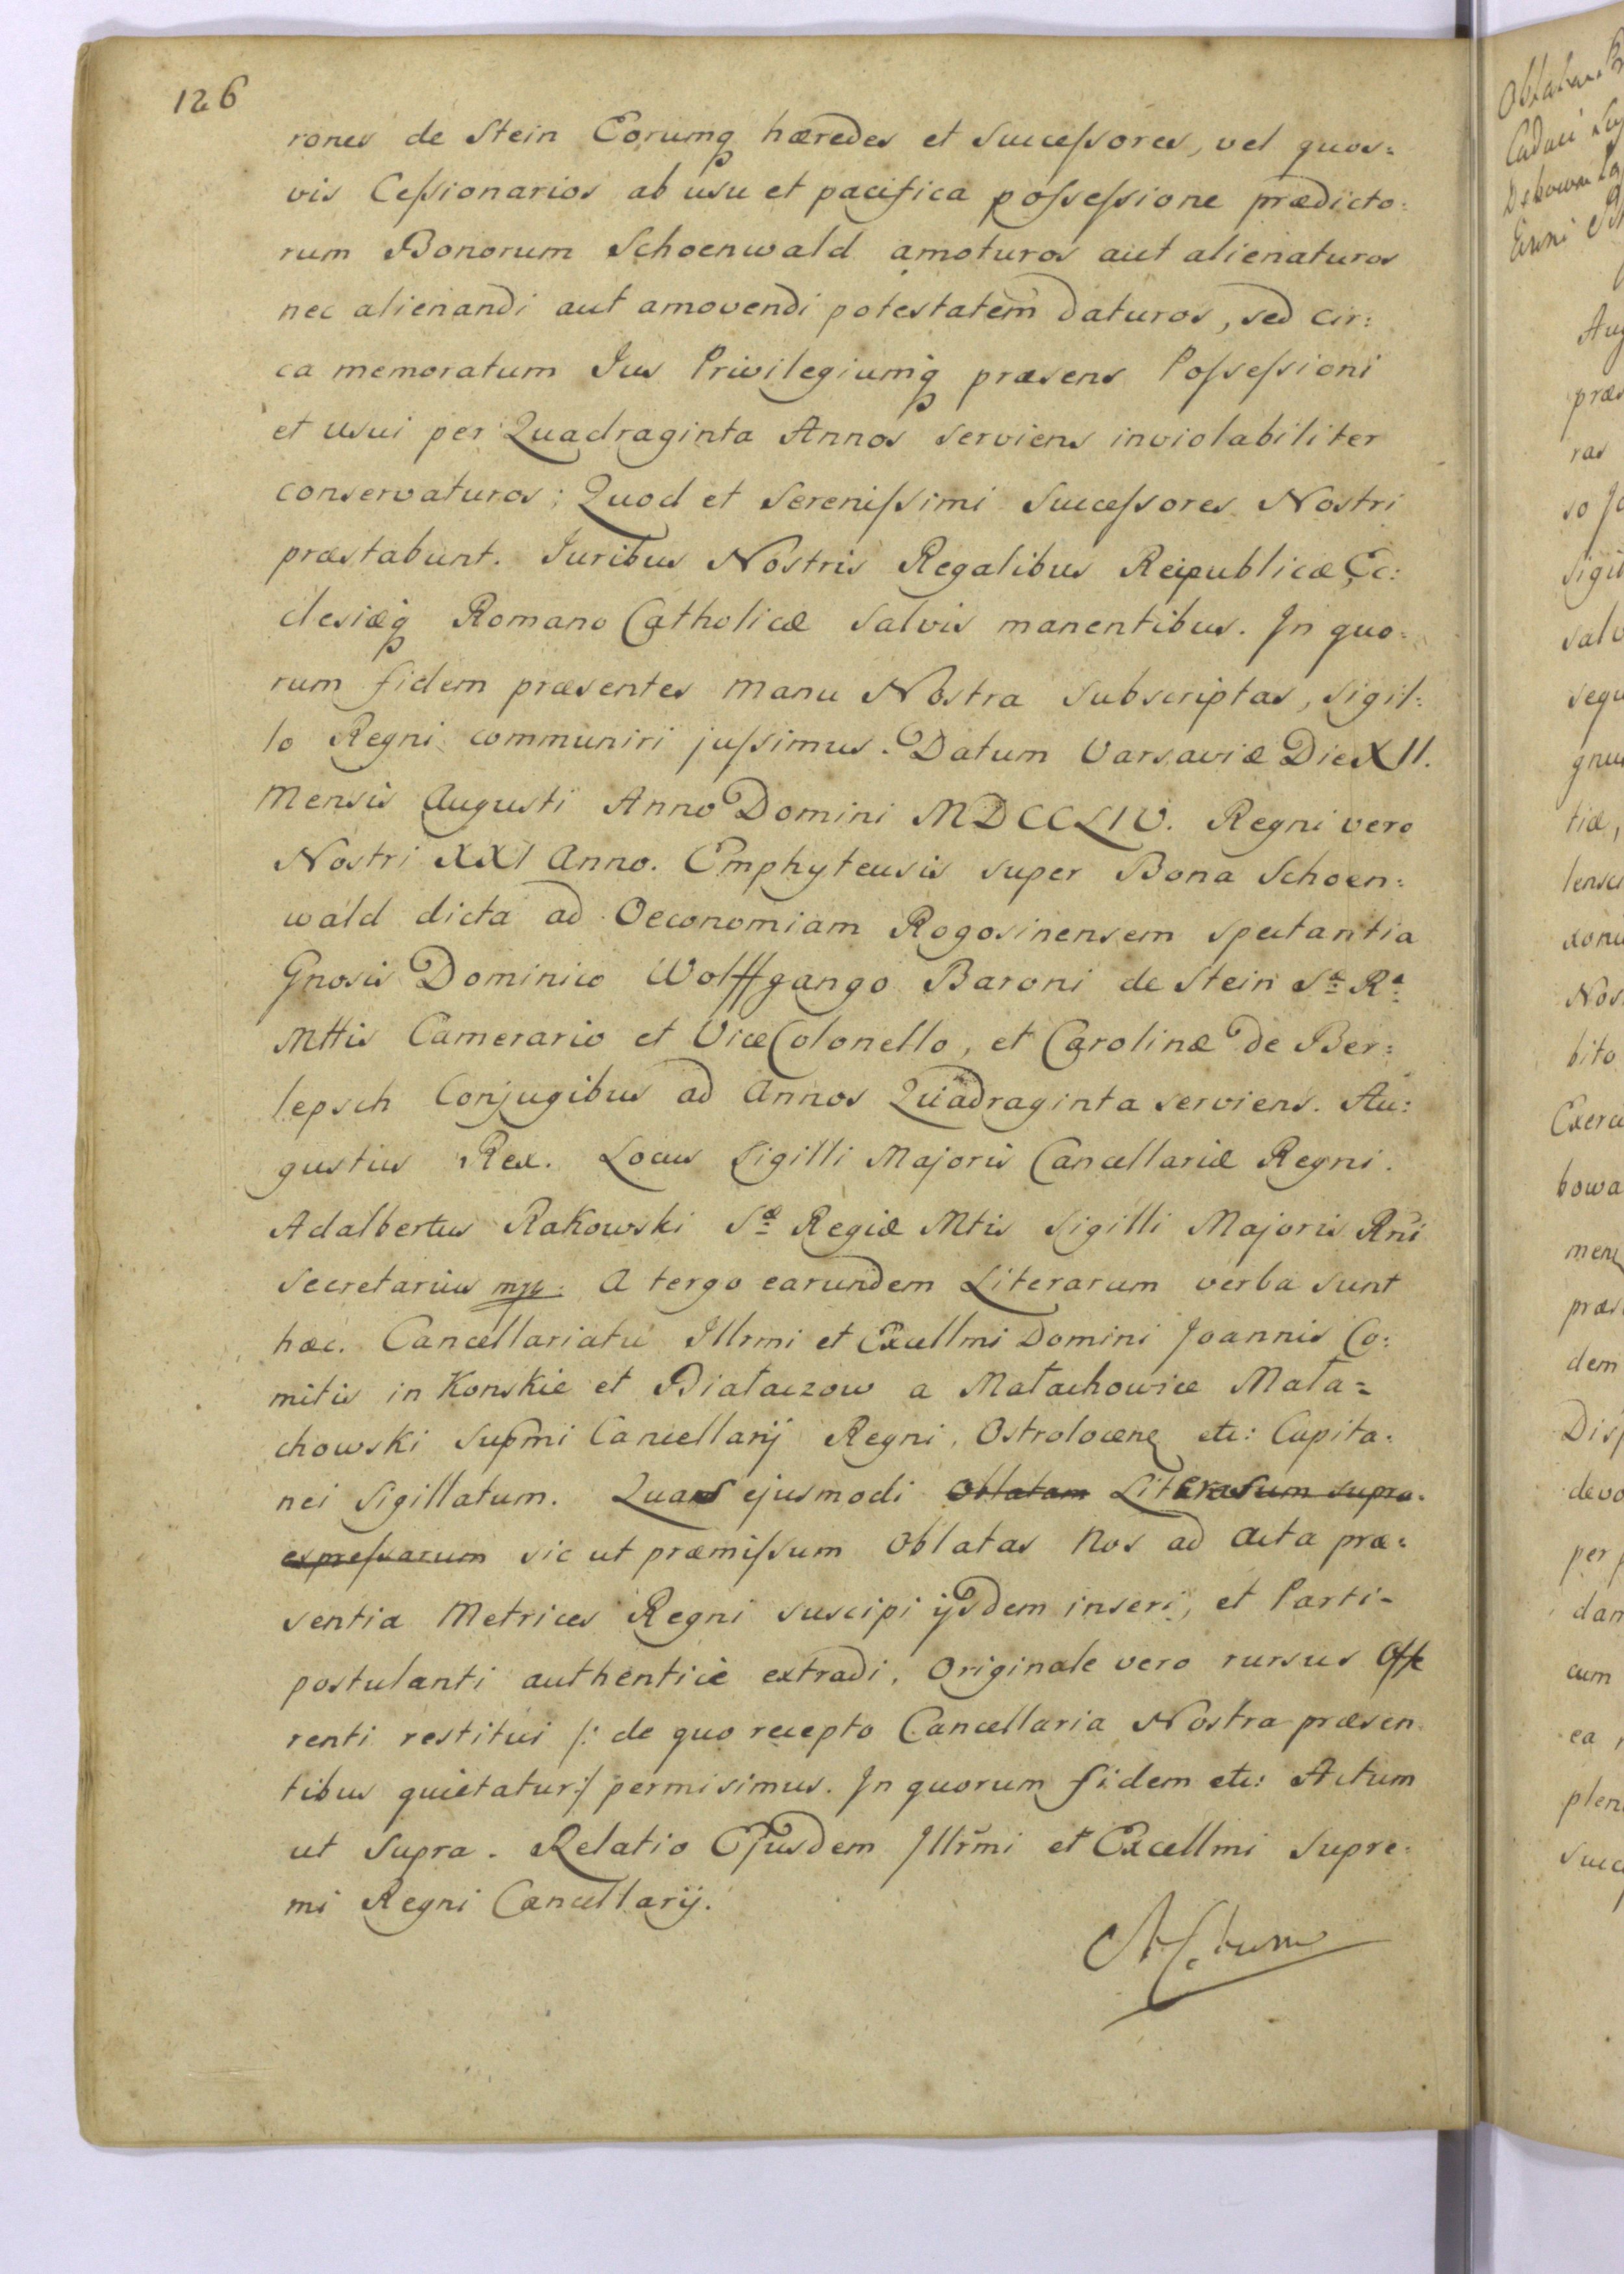 126
rones de Stein Eorumq hæredes et Successores, vel quos=
vis Cessionarios ab usu et pacifica possessione prædicto=
rum Bonorum Schoenwald amoturos aut alienaturos
nec alienandi aut amovendi potestatem daturos, sed cir:
ca memoratum Jus Privilegiumq præsens Possessioni
et usui per Quadraginta Annos serviens inviolabiliter
conservaturos; Quod et Serenissimi Successores Nostri
præstabunt. Juribus Nostris Regalibus Reipublicæ Ec:
clesiæq Romano Catholicæ salvis manentibus. In quo=
rum fidem præsentes manu Nostra subscriptas, sigil:
lo Regni communiri jussimus. Datum Varsaviæ Die XII.
Mensis Augusti Anno Domini MDCCLIV. Regni vero
Nostri XXI Anno. Emphyteusis super Bona Schoen:
wald dicta ad Oeconomiam Rogosinensem spectantia
Gnosis Dominico Wolffgango Baroni de Stein Sæ Ræ
Mttis Camerario et ViceColonello, et Carolinæ de Ber:
lepsch Conjugibus ad Annos Quadraginta serviens. Au:
gustus Rex. Locus Sigilli Majoris Cancellariæ Regni.
Adalbertus Rakowski Sæ Regiæ Mtis Sigilli Majoris Rni
Secretarius mp. A tergo earundem Literarum verba sunt
hæc. Cancellariatu Illrmi et Excellmi Domini Joannis Co:
mitis in Konskie et Białaczow a Małachowice Mała=
chowski Supmi Cancellarij Regni, Ostrolocenę etc: Capita=
nei sigillatum. Quas ejusmodi Oblatam Literarum supra=
expressarum sic ut præmissum oblatas Nos ad Acta præ=
sentia Metrices Regni suscipi ijsdem inseri, et Parti=
postulanti authentice extradi, Originale vero rursus Offe
renti restitui /: de quo recepto Cancellaria Nostra præsen=
tibus quietatur:/ permisimus. In quorum fidem etc: Actum
ut supra. Relatio Ejusdem Illrmi et Excellmi Supre=
mi Regni Cancellarij.